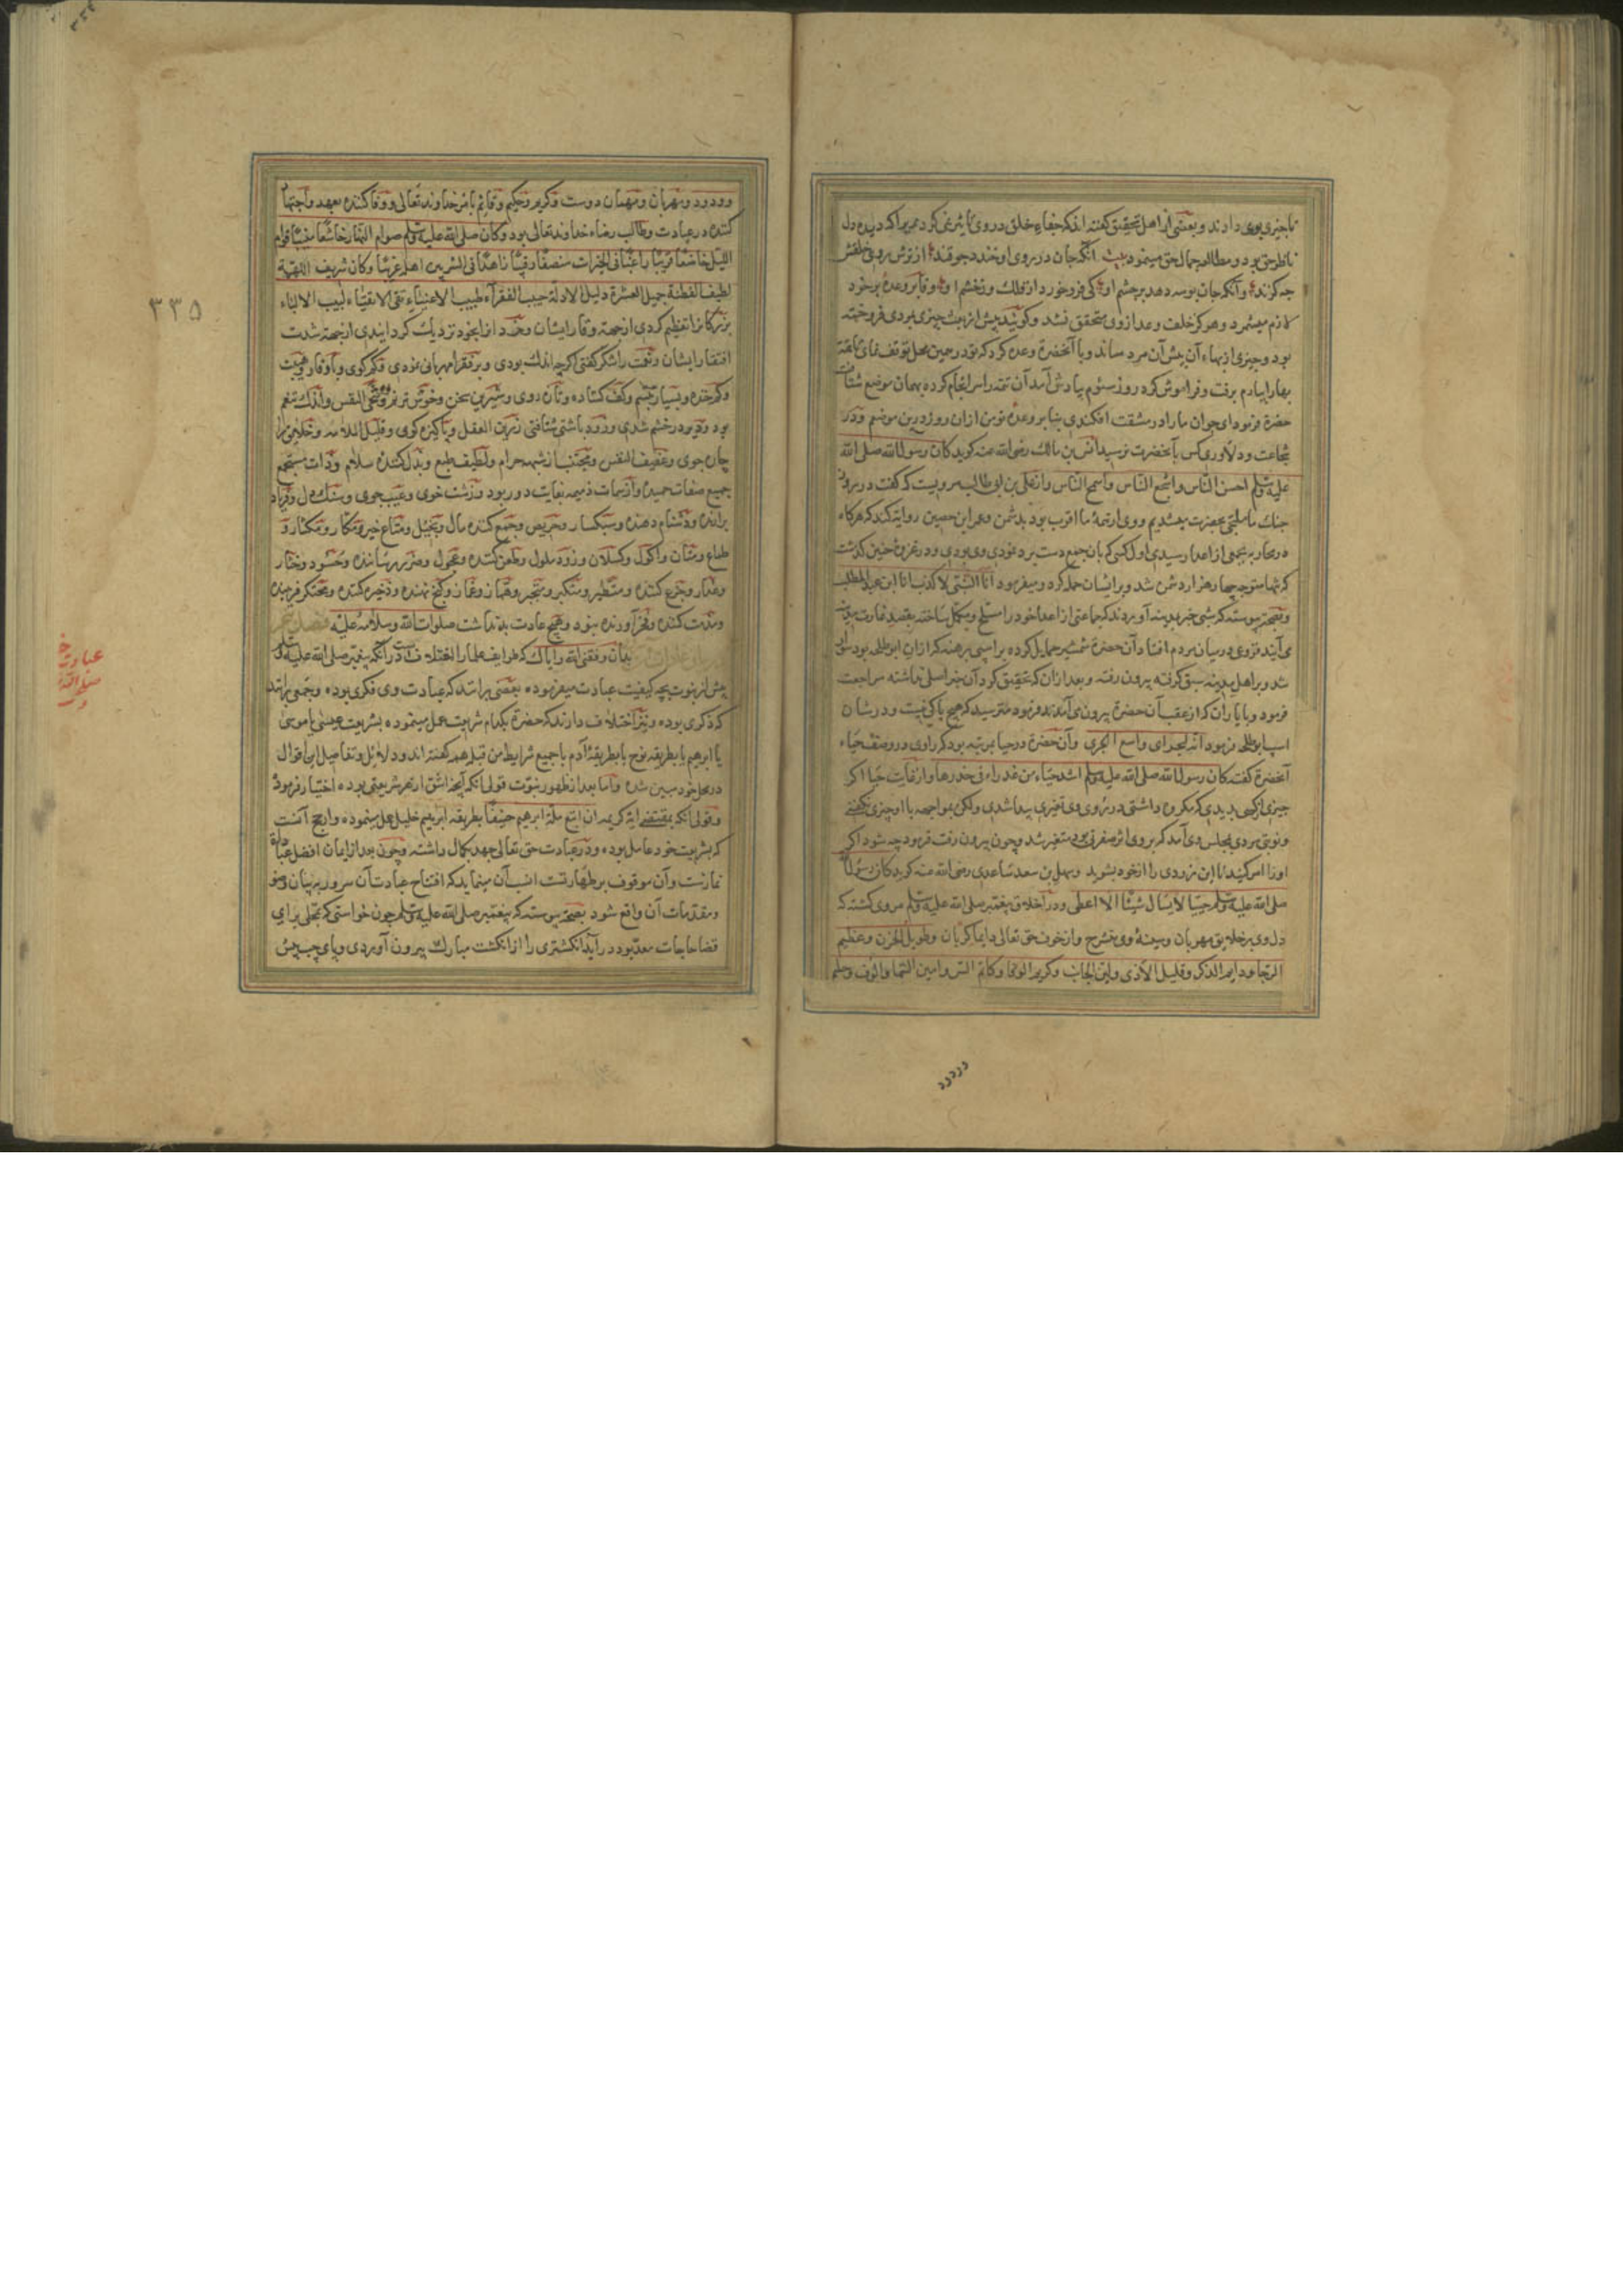 ناجیزی بوی دادند و بعضی از اهل تحقیق گفته اند که جفاء خلق در روی تاثیر نمی کرد بمیرا که دیده دل
ناظر حق بود و مطالعه جمال حق مینمود بیت آنکه جان در روی او خندد چو قند از ترش رویی خلقش
چه گزند و آنکه جان بوسه دهد بر چشم او کی خورد از فلک وز خشم او و وفا بر وعده بر خود
لازم میشمرد و هرگز خلف وعد از وی متحقق نشد و گویند پیش از بعثت چیزی بمردی فروخته
بود و چیزی از بهاء آن پیش آن مرد ماند و با آنحضرة وعده کرد که تو در همین محل توقف نمای تا بقیه
بها را بیارم برفت و فراموش کرد روز سئوم بیادش آمد آن تتمه را سرانجام کرده بهمان موضع شتافت
حضرة فرمود ای جوان ما را در مشقت افکندی بنا بر وعده تو من از ان روز درین موضعم و در
شجاعت و دلاوری کس بآنحضرت نرسید انس بن مالك رضی الله عنه گوید کان رسول الله صلی الله
علیه وسلم احسن الناس واشجع الناس واسمح الناس و از علی بن ابی طالب مرویست که گفت در روز
جنك ما ملتجی بحضرت میشدیم و وی از همهٔ ما اقرب بود بدشمن و عمران حصین روایة کند که هرگاه
در محاربه بجمعی از اعدا رسیدی اول کسی که بان جمع دست برد نمودی وی بودی و در غزوهٔ حنین گذشت
که تنها متوجه چهار هزار دشمن شد و بر ایشان حمله کرد و میفرمود انا النبی لا کذب انا ابن عبد المطلب
و بصحة پیوسته که شبی خبر بمدینه آوردند که جماعتی از اعدا خود را مسلح و مکمل ساخته بقصد غارت مدینه
می آیند فزعی در میان مردم افتاد آن حضرة شمشیر حمایل کرده بر اسپی برهنه که از ان ابو طلحه بود سوار
شد و بر اهل مدینه سبق گرفته بیرون رفت و بعد از ان که تحقیق کرد آن خبر اصلی نداشته مراجعت
فرمود و با یاران که از عقب آن حضرة بیرون می آمدند فرمود مترسید که هیچ باکی نیست و در شان
اسپ ابو طلحه فرمود انه لبحر ای واسع الجری و آن حضرة در حیا بمرتبه بود که راوی در وصف حیاء
آنحضرة گفته کان رسول الله صلی الله علیه وسلم اشد حیاء من عذراء فی خدرها و از غایت حیا اگر
چیزی از کسی بدیدی که مکروه داشتی در روی وی تغیری پیدا شدی ولکن بمواجهه با او چیزی نگفتی
و نوبتی مردی بمجلس وی آمد که بر وی اثر صفرتی بود متغیر شد و چون بیرون رفت فرمود چه شود اگر
او را امر کنید تا این زردی را از خود بشوید و سهل بن سعد ساعدی رضی الله عنه گوید کان رسول الله
صلی الله علیه وسلم حییا لا یسأل شیئا الا اعطی و در اخلاق پیغمبر صلی الله علیه وسلم مروی گشته که
دل وی بر خلایق مهربان و سینهٔ وی منشرح و از خوف حق تعالی دایما گریان و طویل الحزن و عظیم
الرجا و دایم الذکر و قلیل الاذی و لین الجانب و کریم الوفا و کاتم السر و امین السما و الوف و حلیم
و ودود و مهربان و مهمان دوست و کریم و حکیم و قایم بامر خداوند تعالی و وفا کننده بعهد و اجتهاد
کننده در عبادت و طالب رضاء خداوند تعالی بود و کان صلی الله علیه وسلم صوام النهار خاشعا منیبا قوام
اللیل خاضعا قریبا راغبا فی الخیرات منصفا رقیبا زاهدا فی الشر بین اهله غریبا و کان شریف الهمة
لطیف الفطنة جمیل العشرة دلیل الادلة حبیب الفقراء طبیب الاغنیاء تقی الاتقیاء لبیب الالباء
بزرکانرا تعظیم کردی از جهة وقار ایشان و خرد انرا بخود نزدیك گردانیدی از جهة شدت
افتقار ایشان و نعمت را شکر گفتی اگرچه اندك بودی و بر فقرا مهربانی نمودی و کم گوی و با وقار و هیبت
و کم خنده و بسیار تبسم و کف گشاده و تازه روی و شیرین سخن و خوش ترنم و سخی النفس و اندك تنعم
بود و دیر در خشم شدی و زود باشتی شتافتی رزین العقل و پاکیزه گوی و قلیل الملامه و خلایق را
چاره جوی و عفیف النفس و مجتنب از شهد حرام و لطیف طبع و بذل کننده سلام و ذات مستجمع
جمیع صفات حمیده و از سمات ذمیمه بغایت دور بود و زشت خوی و عیب جوی و سنك دل و فریاد
برآرنده و دشنام دهنده و سبکسار و حریص و جمع کننده مال و بخیل و مناع خیر و مکار و مکثار و
طماع و منان و اکول و کسلان و زود ملول و طعن کننده و عجول و ضرر رساننده و حسود و ختار
و غدار و جزع کننده و متطیر و متکبر و متجبر و همّاز و غمّاز و گنج نهنده و ذخیره کننده و محتکر فریبنده
و مذمت کننده و فخر آورنده نبود و هیچ عادت بد نداشت صلوات الله وسلامه علیه فصل
بدان وفقنی الله و ایاك که طوایف علما را اختلاف است در آنکه پیغمبر صلی الله علیه وسلم
پیش از نبوت بچه کیفیت عبادت میفرموده بعضی برانند که عبادت وی فکری بوده و جمعی برانند
که ذکری بوده و نیز اختلاف دارند که حضرة بکدام شریعت عمل مینموده بشریعت عیسی یا موسی
یا ابرهیم یا بطریقه نوح یا بطریقهٔ آدم یا جمیع شرایط من قبلهم گفته اند و دلایل و تفاصیل این اقوال
در محل خود مبین شده و اما بعد از ظهور نبوت قولی انکه آنچه اشق از هر شریعتی بوده اختیار فرمود
و قولی انکه بمقتضی ایة کریمه ان اتبع ملة ابرهیم حنیفا بطریقهٔ ابرهیم خلیل عمل مینموده و ارجح آنست
که بشریعت خود عامل بوده و در عبادت حق تعالی جهد بکمال داشته و چون بعد از ایمان افضل عبادات
نمازست و آن موقوف بر طهارتست انسب آن مینماید که افتتاح عبادت آن سرور ببیان وضو
و مقدمات آن واقع شود بصحة پیوسته که پیغمبر صلی الله علیه وسلم چون خواستی که بمحلی برای
قضا حاجات معد بود در آید انگشتری را از انگشت مبارك بیرون آوردی و پای چپ پیش
۳۳۵
عبادت
صلی الله